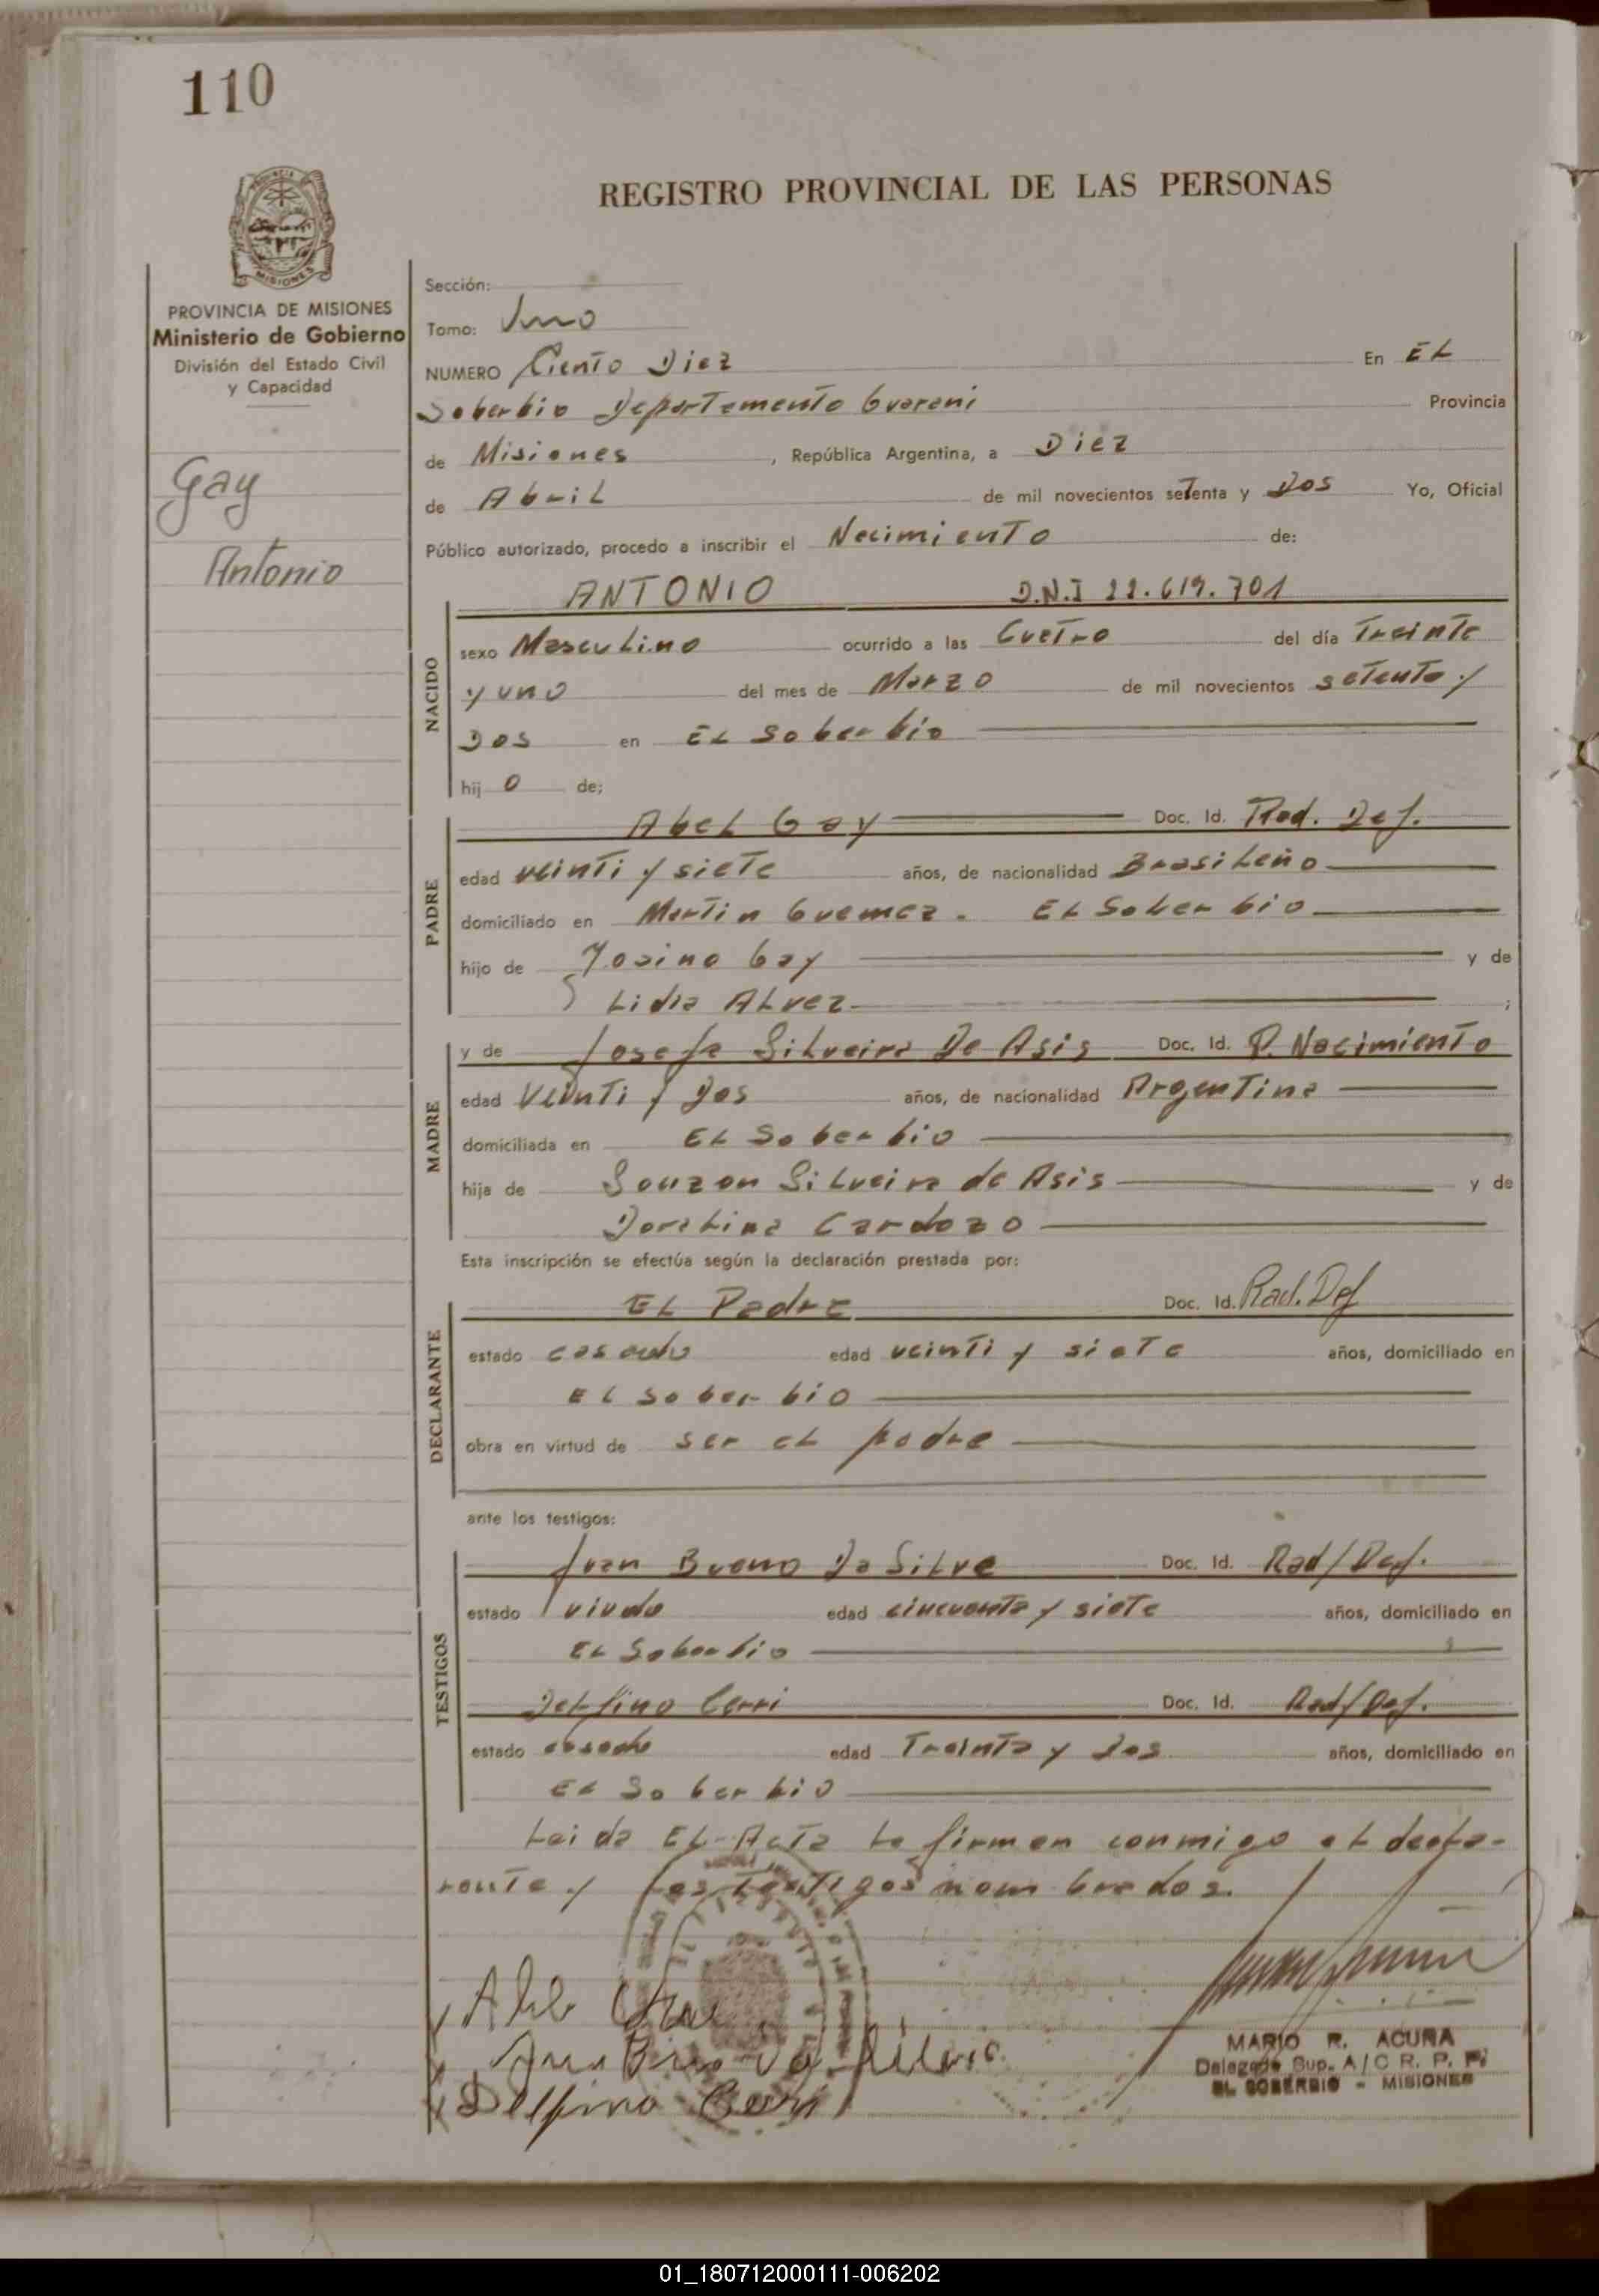 110
REGISTRO PROVINCIAL DE LAS PERSONAS
PROVINCIA DE MISIONES
Ministerio de Gobierno
División del Estado Civil
y Capacidad
Gay
Antonio
Sección:
Tomo: Uno
NUMERO Ciento Diez En EL
Soberbio Departamento Guarani Provincia
de Misiones , República Argentina, a Diez
de Abril de mil novecientos setenta y Dos Yo, Oficial
Público autorizado, procedo a inscribir el Nacimiento de:
ANTONIO D.N.I 22.619.701
NACIDO
sexo Masculino ocurrido a las Cuatro del día Treinta
y uno del mes de Marzo de mil novecientos setenta y
Dos en EL Soberbio
hij o de;
PADRE
Abel Gay Doc. Id. Rad. Def.
edad veinti y siete años, de nacionalidad Brasileño
domiciliado en Martin Guemez. EL Soberbio
hijo de Gay y de
Lidia Alvez ;
MADRE
y de Josefa Silveira De Asis Doc. Id. P. Nacimiento
edad Veinti y Dos años, de nacionalidad Argentina
domiciliada en EL Soberbio
hija de Souzon Silveira de Asis y de
Doralina Cardozo
Esta inscripción se efectúa según la declaración prestada por:
DECLARANTE
EL Padre Doc. Id. Rad. Def
estado casado edad veinti y siete años, domiciliado en
EL Soberbio
obra en virtud de ser el padre
ante los testigos:
TESTIGOS
Juan Bueno Da Silva Doc. Id. Rad/Def.
estado viudo edad cincuenta y siete años, domiciliado en
EL Soberbio
Delfino Cerri Doc. Id. Rad/Def.
estado casado edad Treinta y Dos años, domiciliado en
EL Soberbio
Leida EL Acta la firman conmigo el decla-
rante y los testigos nombrados.
Delfino Cerri
MARIO R. ACUÑA
Delegado Sup. A/C R. P. P.
EL SOBERBIO - MISIONES
01_180712000111-006202